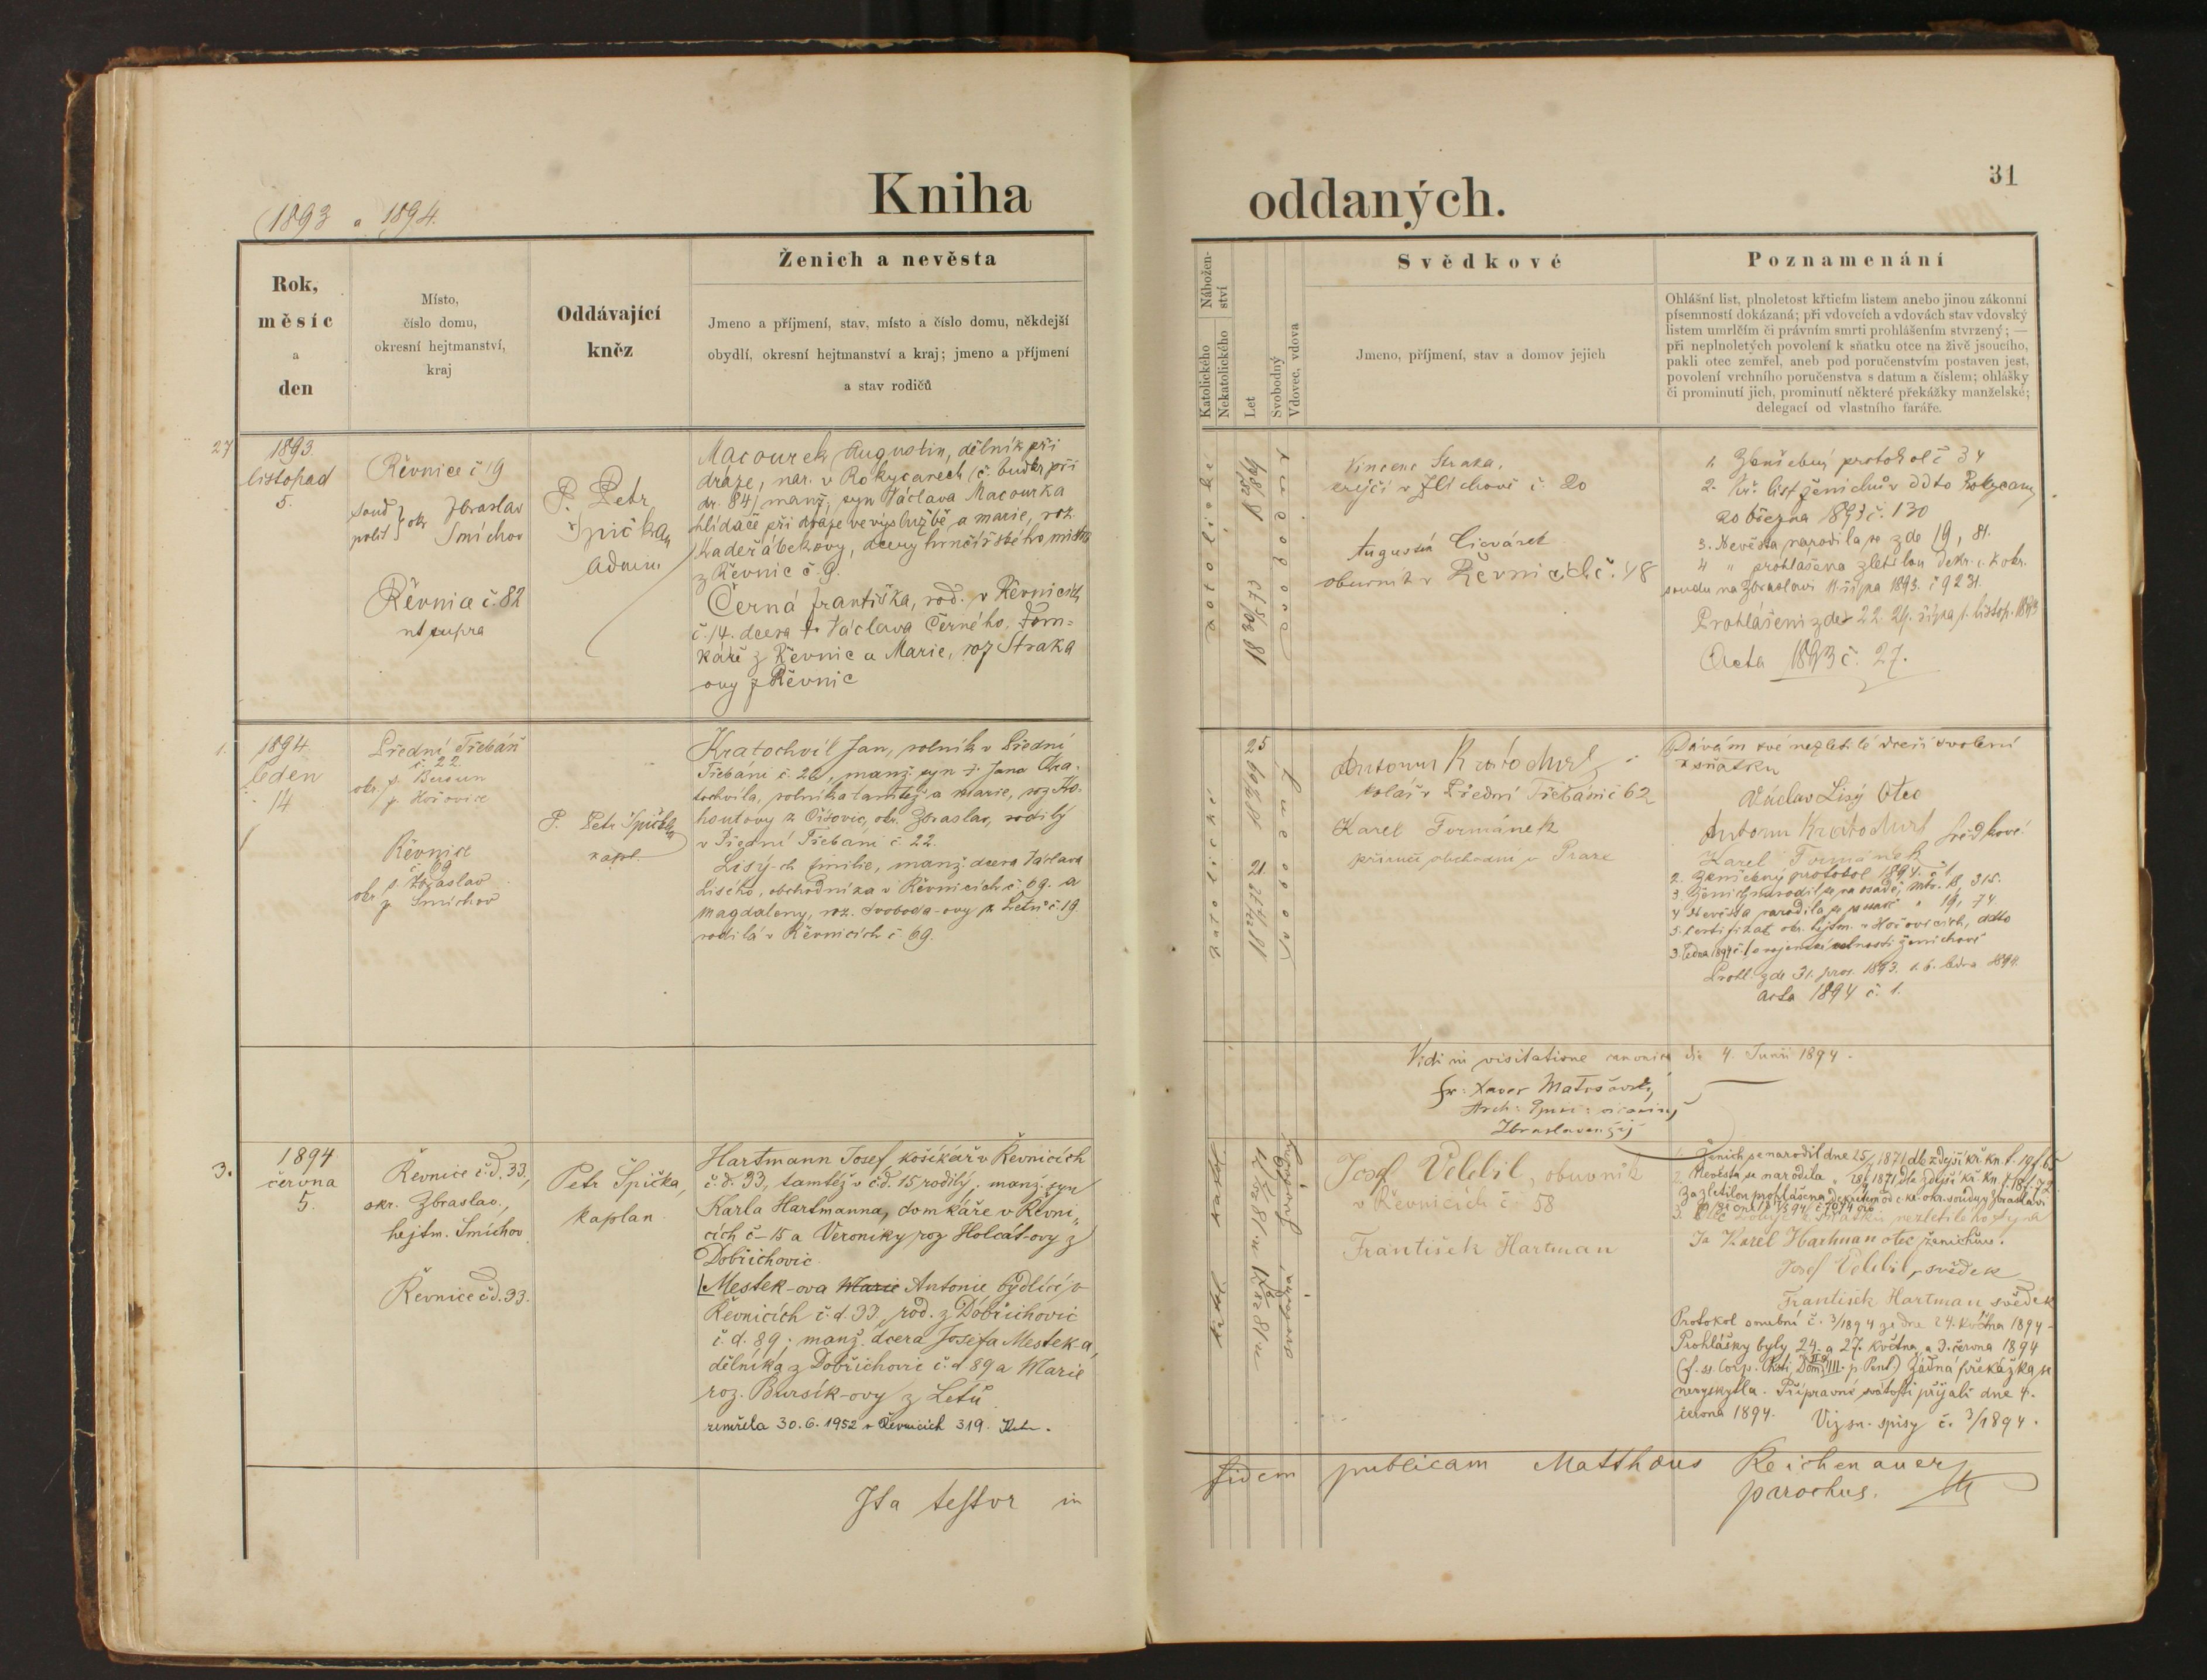 Kniha
(1893 a 1894.
Rok,
měsíc
a
den
Místo,
číslo domu,
okresní hejtmanství,
kraj
Oddávající
kněz
Ženich a nevěsta
Jmeno a příjmení, stav, místo a číslo domu, někdejší
obydlí, okresní hejtmanství a kraj; jmeno a příjmení
a stav rodičů
27
1893.
listopad
5.
Řevnice č 9
soud
polit
okr
Zbraslav
Smíchov
Řevnice č. 82
ut supra
P. Petr
Špička
Admin
Macourek Augustin, dělník při
dráze, nar. v Rokycanech (č. budky při
dr. 84) manž. syn Václava Macourka
hlídače při dráze ve výslužbě a Marie, roz.
Kadeřábekovy, dcery hrnčířského mistra
z Řevnic č. 9.
Černá Františka, rod. v Řevnicích
č. 14. dcera † Václava Černého, dom=
káře z Řevnic a Marie, roz Straka
ovy z Řevnic
1.
1894.
leden
14
Přední Třebáň
č. 22.
okr. s. Beroun
p. Hořovice
Řevnice
č 69
okr s Zbraslav
p Smíchov
P. Petr Špička
kapl.
Kratochvíl Jan, rolník v Přední
Třebáni č. 26, manž. syn † Jana Kra-
tochvíla, rolníka tamtéž a Marie, roz Ko-
houtovy z Čísovic, okr. Zbraslav, rodilý
v Přední Třebani č 22.
Lisý-ch Emilie, manž. dcera Václava
Lisého, obchodníka v Řevnicích č. 69. a
Magdaleny, roz. Svoboda-ovy z Letů č. 19.
rodilá v Řevnicích č 69.
3.
1894
června
5.
Řevnice č.d. 33,
okr. Zbraslav,
hejtm. Smíchov
Řevnice č.d. 33.
Petr Špička,
kaplan
Hartmann Josef, košíkář v Řevnicích
č.d. 33, tamtéž v č.d. 15 rodilý, manž. syn
Karla Hartmanna, domkáře v Řevni„
cích č-15 a Veroniky roz Holcát-ovy z
Dobřichovic
Mestek-ova Marie Antonie bydlící v
Řevnicích č.d. 33, rod. z Dobřichovic
č.d. 89; manž. dcera Josefa Mestek-a,
dělníka z Dobřichovic č.d 89 a Marie
roz. Bursík-ovy z Letů.
zemřela 30.6.1952 v Řevnicích 319.
Ita testor in
oddaných.
31
Nábožen-
ství
Katolického
Nekatolického
Let
Svobodný
Vdovec, vdova
Svědkové
Jmeno, příjmení, stav a domov jejich
Poznamenání
Ohlášní list, plnoletost křticím listem anebo jinou zákonní
písemností dokázaná; při vdovcích a vdovách stav vdovský
listem umrlčím či právním smrti prohlášením stvrzený; —
při neplnoletých povolení k sňatku otce na živě jsoucího,
pakli otec zemřel, aneb pod poručenstvím postaven jest,
povolení vrchního poručenstva s datum a číslem; ohlášky
či prominutí jich, prominutí některé překážky manželské;
delegací od vlastního faráře.
katolické
svobodní
Vincenc Straka,
krejčí v Hlíchově č. 20
Augustin
obuvník v Řevnicích č. 48
1. Ženšební protokol č 34
2. Kř. list ženichův ddto Rokycany
20 března 1893 č. 130
3. Nevěsta narodila se zde 19, 81.
4 " prohlášena zletilou dekr. c. k okr.
soudu na Zbraslavi 11. října 1893. č 9231.
Prohlášeni zde 22. 29. října 1. listop. 1893
Acta 1893 č. 27.
25
21
katolické
svobodní
Antonín Kratochvíl
kolář v Přední Třebáni č 62
Karel Formánek
příručí obchodní v Praze
Dávám své nezletilé dceři svolení
k sňatku
Václav Lisý Otec
Antonín Kratochvíl
Karel Formánek
svědkové
2. Ženšebný protokol 1894. č 1
3. Ženich narodil se na osadě, Mtr. 18, 315.
4 Nevěsta narodila se " 19, 74
5. Certifikát okr. hejtm. v Hořovicích, ddto
3. ledna 1894 č. 1 o vojenské volnosti ženichově
Prohl. zde 31. pros. 1893. 1. 6. ledna 1894.
acta 1894 č. 1.
Vidi in visitatione canonica die 4. Junii 1894.
Fr: Xaver
Arch:
Zbraslavensis
Josef Velebil, obuvník
v Řevnicích č 58
František Hartman
1. Ženich se narodil dne 25/7 1871 dle zdejší kř. kn.
2. Nevěsta se narodila
Za zletilou prohlášena dekretem od c. k. okr. soudu v Zbraslavi
3. Otec svoluje k sňatku nezletilého syna
Ja Karel Hartman otec ženichův.
Josef Velebil, svědek
František Hartman svědek
Protokol snubní č. 3/1894 ze dne 24. května 1894 -
Prohlášky byly 24. a 27. května a 3. června 1894
(f. ss Corp. Christi, Dom. II. et III. p. Pent.) Žádná překážka se
nevyskytla. Přípravné svátosti přijali dne 4.
června 1894. Viz sn. spisy č. 3/1894.
fidem publicam Matthaeus Reichenauer
parochus.